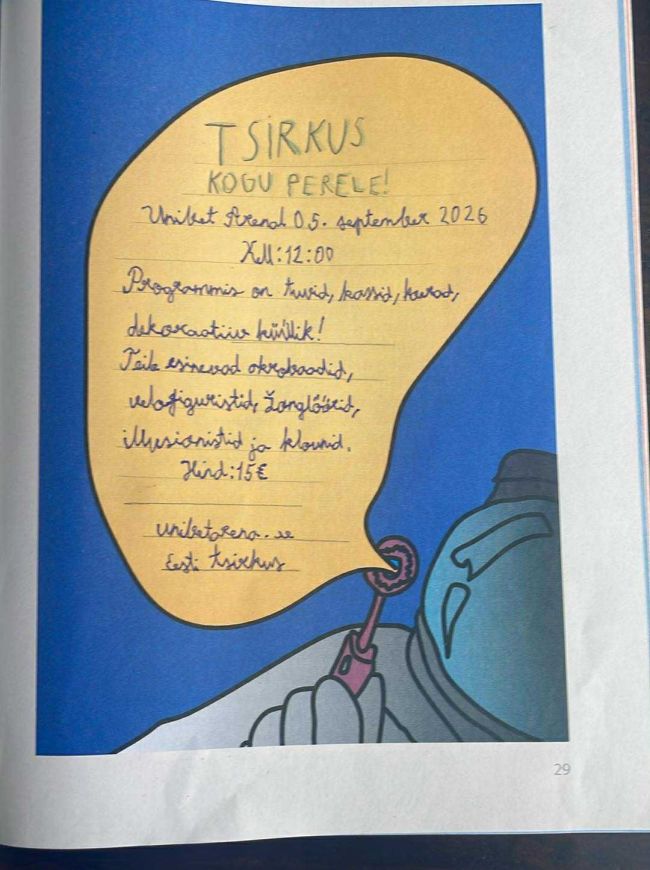 TSIRKUS
KOGU PERELE!
Unibet Arend 05. september 2026
Kell:12:00
Programmis on tuvid, kassid, koerad,
dekoratiiv küülik!
Teile esinevad akrobaadid,
velofiguristid, žonglöörid,
illusionistid ja klounid.
Hind:15€
unibetarena.ee
Eesti tsirkus
29